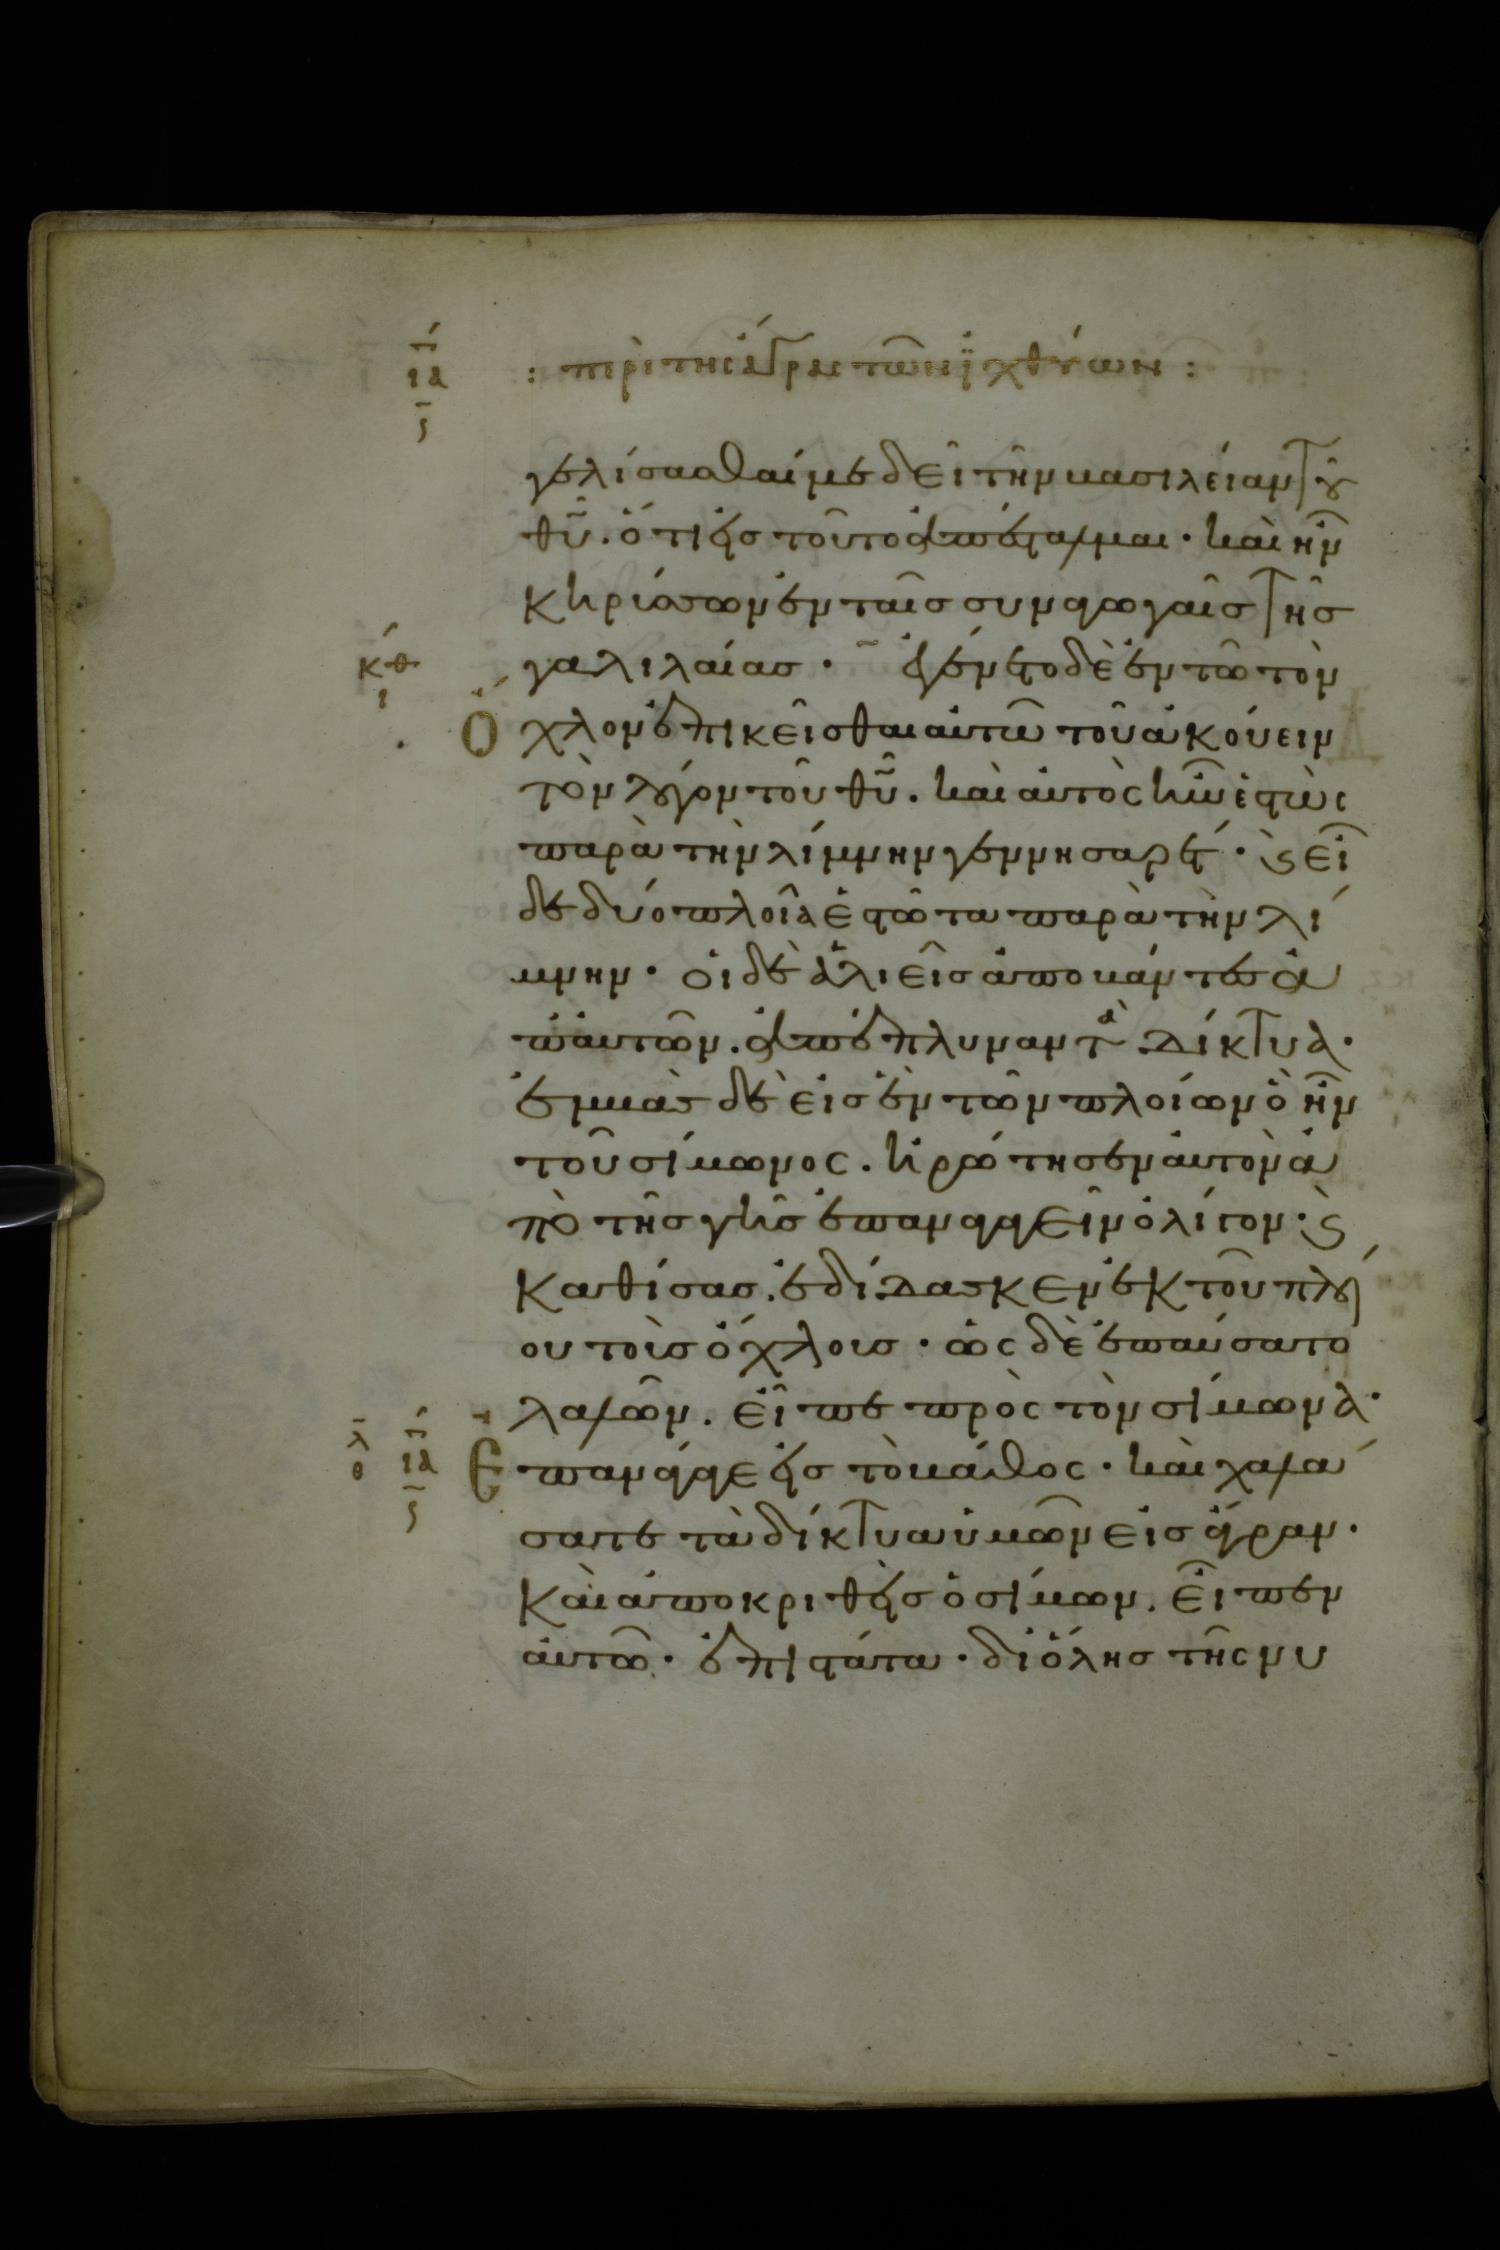 : περὶ τῆς ἄγρας τῶν ἰχθύων :
γελίσασθαί με δεῖ τὴν βασιλείαν τοῦ
θῡ. ὅτι εἰς τοῦτο ἀπέσταλμαι. καὶ ἦν
κηρύσσων ἐν ταῖς συναγωγαῖς τῆς
γαλιλαίας. ἐγένετο δὲ ἐν τῶ τὸν
Ὄχλον ἐπικεῖσθαι αὐτῶ τοῦ ἀκούειν
τὸν λόγον τοῦ θῡ. καὶ αὐτὸς ἦν ἑστὼς
παρὰ τὴν λίμνην γεννησαρέτ. ϗ εἶ
δε δύο πλοῖα ἑστῶτα παρὰ τὴν λί
μνην. οἱ δὲ ἁλιεῖς ἀποβάντες ἀ
π' αὐτῶν. ἀπέπλυναν τὰ δίκτυα.
ἐμβὰς δὲ εἰς ἓν τῶν πλοίων ὃ ἦν
τοῦ σίμωνος. ἠρώτησεν αὐτὸν ἀ
πὸ τῆς γῆς ἐπαναγαγεῖν ὀλίγον. ϗ
καθίσας. ἐδίδασκεν ἐκ τοῦ πλοί
ου τοὺς ὄχλους. ὡς δὲ ἐπαύσατο
λαλῶν. εἶπε πρὸς τὸν σίμωνα.
Ἐπανάγαγε εἰς τὸ βάθος. καὶ χαλά
σατε τὰ δίκτυα ὑμῶν εἰς ἄγραν.
Καὶ ἀποκριθεὶς ὁ σίμων. εἶπεν
αὐτῶ. ἐπιστάτα. δι' ὅλης τῆς νυ